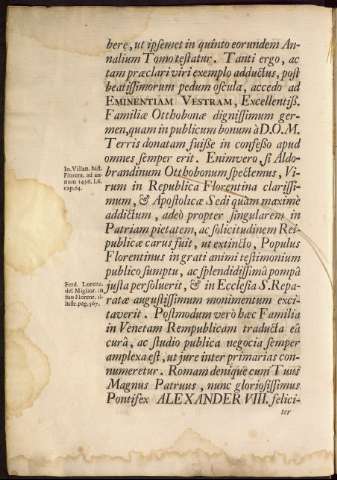 bere, ut ipsemet in quinto eorundem An-
nalium Tomo testatur. Tanti ergo, ac
tam præclari viri exemplo adductus, post
beatissimorum pedum oscula, accedo ad
EMINENTIAM VESTRAM, Excellentiss.
Familiæ Otthobonæ dignissimum ger-
men, quam in publicum bonum à D.O.M.
Terris donatam fuisse in confesso apud
omnes semper erit. Enimvero, si Aldo-
brandinum Otthobonum spectemus, Vi-
rum in Republica Florentina clarissi-
mum, & Apostolicæ Sedi quàm maximè
addictum, adeò propter singularem in
Patriam pietatem, ac solicitudinem Rei-
publicæ carus fuit, ut extincto, Populus
Florentinus in grati animi testimonium
publico sumptu, ac splendidissimâ pompâ
justa persoluerit, & in Ecclesia S. Repa-
ratæ augustissimum monimentum exci-
taverit. Postmodum verò hæc Familia
in Venetam Rempublicam traducta eâ
curâ, ac studio publica negocia semper
amplexa est, ut jure inter primarias con-
numeretur. Romam denique cum Tuus
Magnus Patruus, nunc gloriosissimus
Pontifex ALEXANDER VIII. felici-
ter
Io. Villan. hist.
Florent. ad an-
num
cap.
Ferd. Leopold.
del Migliore in
sua Florenc. il-
lustr. pag.